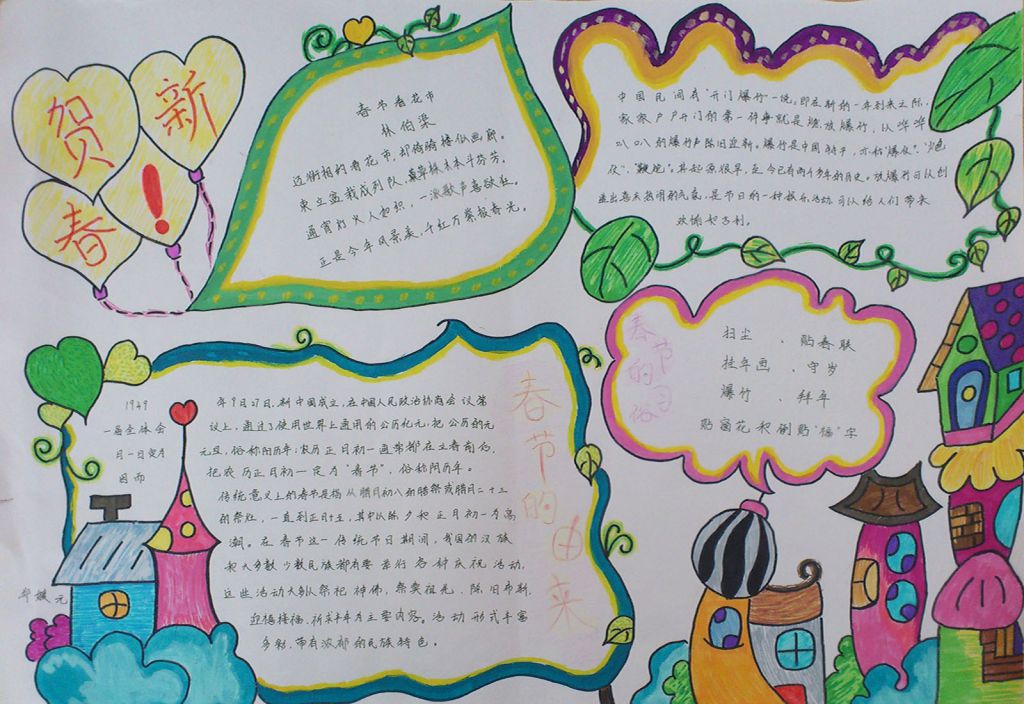 贺
新
春
!
春节看花市
林伯渠
迈街相约看花市,却倚骑楼似画廊。
束立盆栽成列队,草株木本斗芬芳。
通宵灯火人如织,一派歌声喜欲狂。
正是今年风景美,千红万紫报春光。
中国民间有"开门爆竹"一说。即在新的一年到来之际,
家家户户开门的第一件事就是燃放爆竹,以哗哗
叭叭的爆竹声除旧迎新。爆竹是中国特产,亦称"爆仗"、"炮
仗"、"鞭炮"。其起源很早,至今已有两千多年的历史。放爆竹可以创
造出喜庆热闹的气氛,是节日的一种娱乐活动,可以给人们带来
欢愉和吉利。
春节
的
俗习
扫尘、贴春联
挂年画、守岁
爆竹、拜年
贴窗花和倒贴"福"字
春节的由来
1949年9月27日,新中国成立,在中国人民政治协商会议第
一届全体会议上,通过了使用世界上通用的公历纪元,把公历的元
月一日定为元旦,俗称阳历年;农历正月初一通常都在立春前后,
因而把农历正月初一定为"春节",俗称阴历年。
传统意义上的春节是指从腊月初八的腊祭或腊月二十三
的祭灶,一直到正月十五,其中以除夕和正月初一为高
潮。在春节这一传统节日期间,我国的汉族
和大多数少数民族都有要举行各种庆祝活动,
这些活动大多以祭祀神佛,祭奠祖先,除旧布新,
迎禧接福,祈求丰年为主要内容。活动形式丰富
多彩,带有浓郁的民族特色。